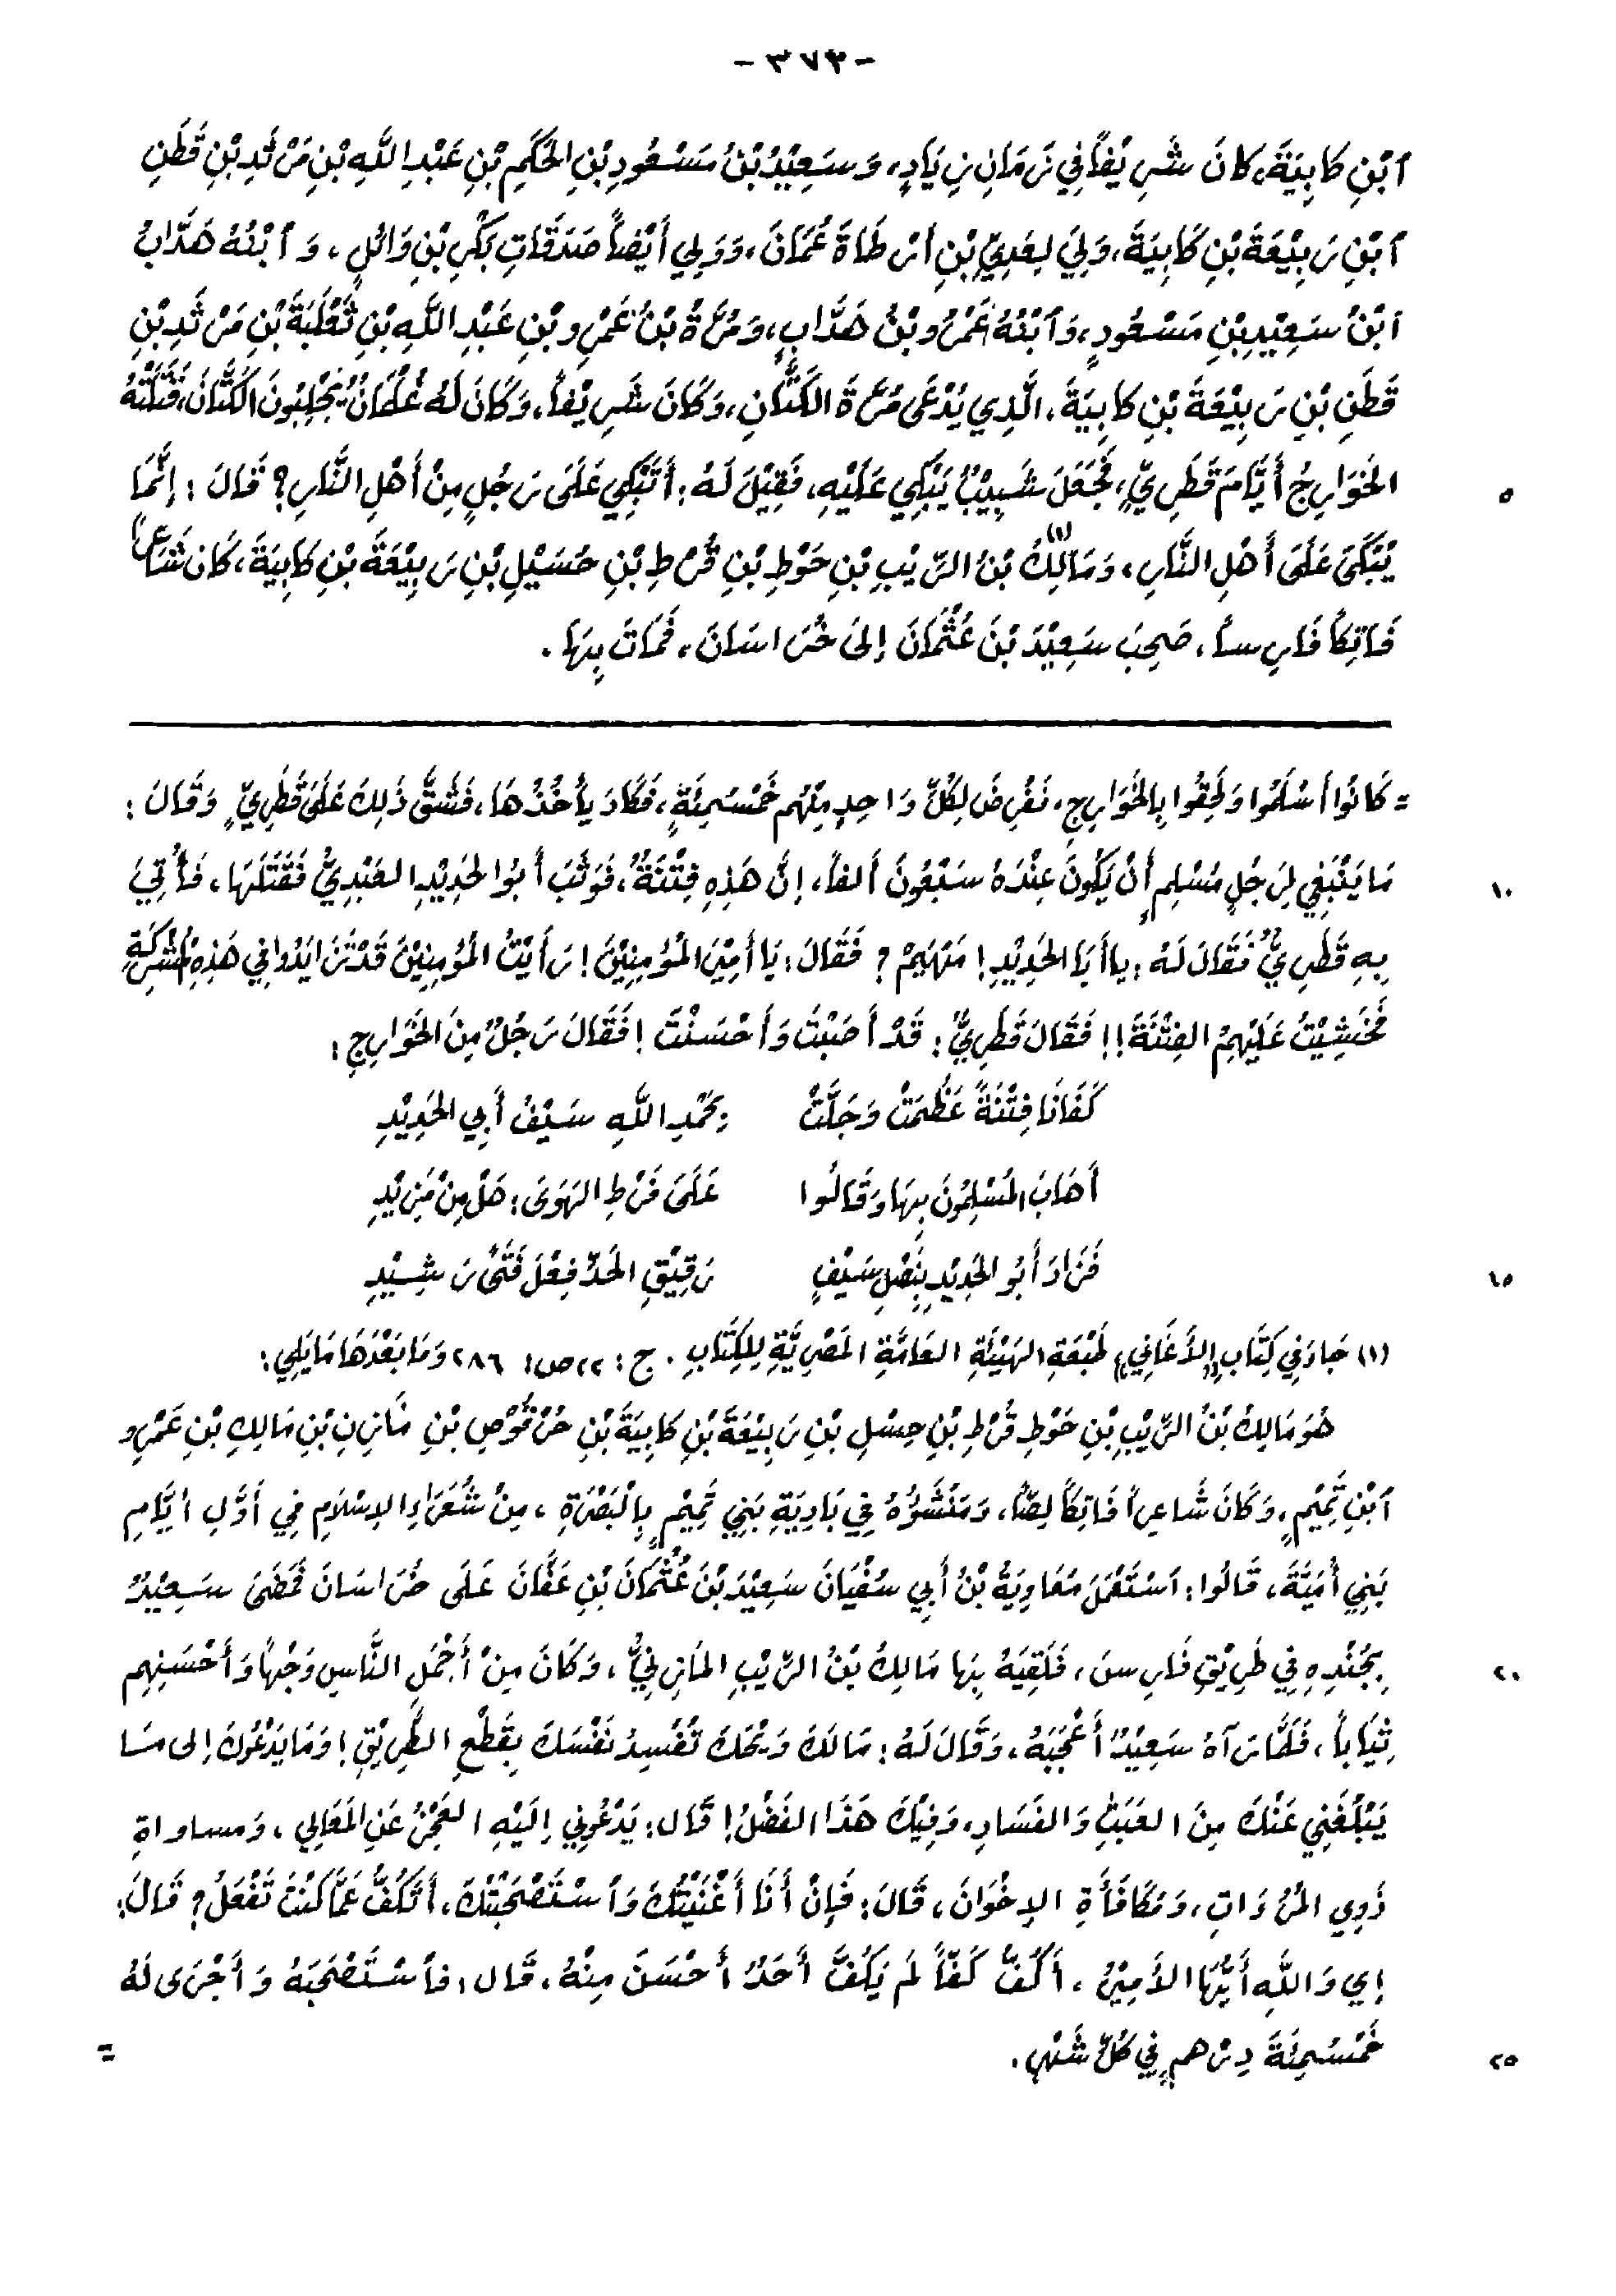 - ٣٧٣ -
ٱبْنِ كَابِيَةَ، كَانَ شَرِيْفاً فِي زَمَانِ زِيَادٍ، وَسَعِيْدُ بْنُ مَسْعُودِ بْنِ الحَكَمِ بْنِ عَبْدِ اللَّهِ بْنِ مَرْثَدِ بْنِ قَطَنِ
ٱبْنِ رَبِيْعَةَ بْنِ كَابِيَةَ، وَلِيَ لِعَدِيِّ بْنِ أَرْطَاةَ عُمَانَ، وَوَلِي أَيْضاً صَدَقَاتِ بَكْرِ بْنِ وَائِلٍ، وَٱبْنُهُ هَدَّابُ
ٱبْنُ سَعِيْدِ بْنِ مَسْعُودٍ، وَٱبْنُهُ عَمْرُو بْنُ هَدَّابٍ، وَمُرَّةُ بْنُ عَمْرِو بْنِ عَبْدِ اللَّهِ بْنِ ثَعْلَبَةَ بْنِ مَرْثَدِ بْنِ
قَطَنِ بْنِ رَبِيْعَةَ بْنِ كَابِيَةَ، الَّذِي يُدْعَى مُرَّةَ الكَتَّانِ، وَكَانَ شَرِيْفاً، وَكَانَ لَهُ غُلْمَانٌ يُجْلِبُونَ الكَتَّانَ، فَقَتَلَتْهُ
الخَوَارِجُ أَيَّامَ قَطَرِيٍّ، فَجَعَلَ شَبِيْبٌ يَبْكِي عَلَيْهِ، فَقِيْلَ لَهُ: أَتَبْكِي عَلَى رَجُلٍ مِنْ أَهْلِ النَّارِ؟ قَالَ: إِنَّمَا
٥
يُبْكَى عَلَى أَهْلِ النَّارِ، وَمَالِكُ(١) بْنُ الرَّيْبِ بْنِ حَوْطِ بْنِ قُرْطِ بْنِ حُسَيْلِ بْنِ رَبِيْعَةَ بْنِ كَابِيَةَ، كَانَ شَاعِراً
فَاتِكاً فَارِساً، صَحِبَ سَعِيْدَ بْنَ عُثْمَانَ إِلَى خُرَاسَانَ، فَمَاتَ بِهَا.
= كَانُوا أَسْلَمُوا وَلَحِقُوا بِالخَوَارِجِ، نَفْرِضُ لِكُلِّ وَاحِدٍ مِنْهُم خَمْسَمِئَةٍ، فَكَادَ يَأْخُذُهَا، فَشَقَّ ذَلِكَ عَلَى قَطَرِيٍّ وَقَالَ:
مَا يَنْبَغِي لِرَجُلٍ مُسْلِمٍ أَنْ يَكُونَ عِنْدَهُ سَبْعُونَ أَلفاً، إِنَّ هَذِهِ فِتْنَةٌ، فَوَثَبَ أَبُو الحَدِيْدِ العَبْدِيُّ فَقَتَلَهَا، فَأُتِيَ
١٠
بِهِ قَطَرِيٌّ فَقَالَ لَهُ: يا أَبَا الحَدِيْدِ! مَهْيَمْ؟ فَقَالَ: يَا أَمِيْرَ المُؤْمِنِيْنَ! رَأَيْتُ المُؤْمِنِيْنَ قَدْ تَزَايَدُوا فِي هَذِهِ المُشْرِكَةِ
فَخَشِيْتُ عَلَيْهِمُ الفِتْنَةَ!! فَقَالَ قَطَرِيٌّ: قَدْ أَصَبْتَ وَأَحْسَنْتَ! فَقَالَ رَجُلٌ مِنَ الخَوَارِجِ:
كَفَانَا فِتْنَةً عَظُمَتْ وَجَلَّتْ بِحَمْدِ اللَّهِ سَيْفُ أَبِي الحَدِيْدِ
أَهَابَ المُسْلِمُونَ بِهَا وَقَالُوا عَلَى فَرْطِ الهَوَى: هَلْ مِنْ مَزِيْدِ
فَزَادَ أَبُو الحَدِيْدِ بِنَصْلِ سَيْفٍ رَقِيْقِ الحَدِّ فِعْلَ فَتًى رَشِيْدِ
١٥
(١) جَاءَ فِي كِتَابِ «الأَغَانِي» طَبْعَةِ الهَيْئَةِ العَامَّةِ المَصْرِيَّةِ لِلكِتَابِ. ج: ٢٢ ص: ٢٨٦ وَمَا بَعْدَهَا مَايَلِي:
هُوَ مَالِكُ بْنُ الرَّيْبِ بْنِ حَوْطِ قُرْطِ بْنِ حِسْلِ بْنِ رَبِيْعَةَ بْنِ كَابِيَةَ بْنِ حُرْقُوْصِ بْنِ مَازِنِ بْنِ مَالِكِ بْنِ عَمْرِو
ٱبْنِ تَمِيْمٍ، وَكَانَ شَاعِراً فَاتِكاً لِصّاً، وَمَنْشَؤُهُ فِي بَادِيَةِ بَنِي تَمِيْمٍ بِالْبَصْرَةِ، مِنْ شُعَرَاءِ الإِسْلَامِ فِي أَوَّلِ أَيَّامِ
بَنِي أُمَيَّةَ، قَالُوا: ٱسْتَعْمَلَ مُعَاوِيَةُ بْنُ أَبِي سُفْيَانَ سَعِيْدَ بْنَ عُثْمَانَ بْنِ عَفَّانَ عَلَى خُرَاسَانَ فَمَضَى سَعِيْدٌ
بِجُنْدِهِ فِي طَرِيْقِ فَارِسَ، فَلَقِيَهُ بِهَا مَالِكُ بْنُ الرَّيْبِ المَازِنِيُّ، وَكَانَ مِنْ أَجْمَلِ النَّاسِ وَجْهاً وَأَحْسَنِهِم
٢٠
ثِيَاباً، فَلَمَّا رَآهُ سَعِيْدٌ أَعْجَبَهُ، وَقَالَ لَهُ: مَالَكَ وَيْحَكَ تُفْسِدُ نَفْسَكَ بِقَطْعِ الطَّرِيْقِ! وَمَا يَدْعُوكَ إِلى مَا
يَبْلُغُنِي عَنْكَ مِنَ العَبَثِ وَالفَسَادِ، وَفِيْكَ هَذَا الفَضْلُ! قَال: يَدْعُونِي إِلَيْهِ العَجْزُ عَنِ المَعَالِي، وَمساواةِ
ذَوِي المُرُوَاتِ، وَمُكَافَأَةِ الإِخْوَانَ، قَالَ: فَإِنْ أَنَا أَغْنَيْتُكَ وَٱسْتَصْحَبْتُكَ، أَتَكُفُّ عَمَّا كُنْتَ تَفْعَلُ؟ قَالَ:
إِي وَاللَّهِ أَيُّهَا الأَمِيْرُ، أَكُفُّ كَفّاً لَم يَكُفَّ أَحَدٌ أَحْسَنَ مِنْهُ، قَال: فَٱسْتَصْحَبَهُ وَأَجْرَى لَهُ
خَمْسَمِئَةَ دِرْهمٍ فِي كُلِّ شَهْرٍ. =
٢٥